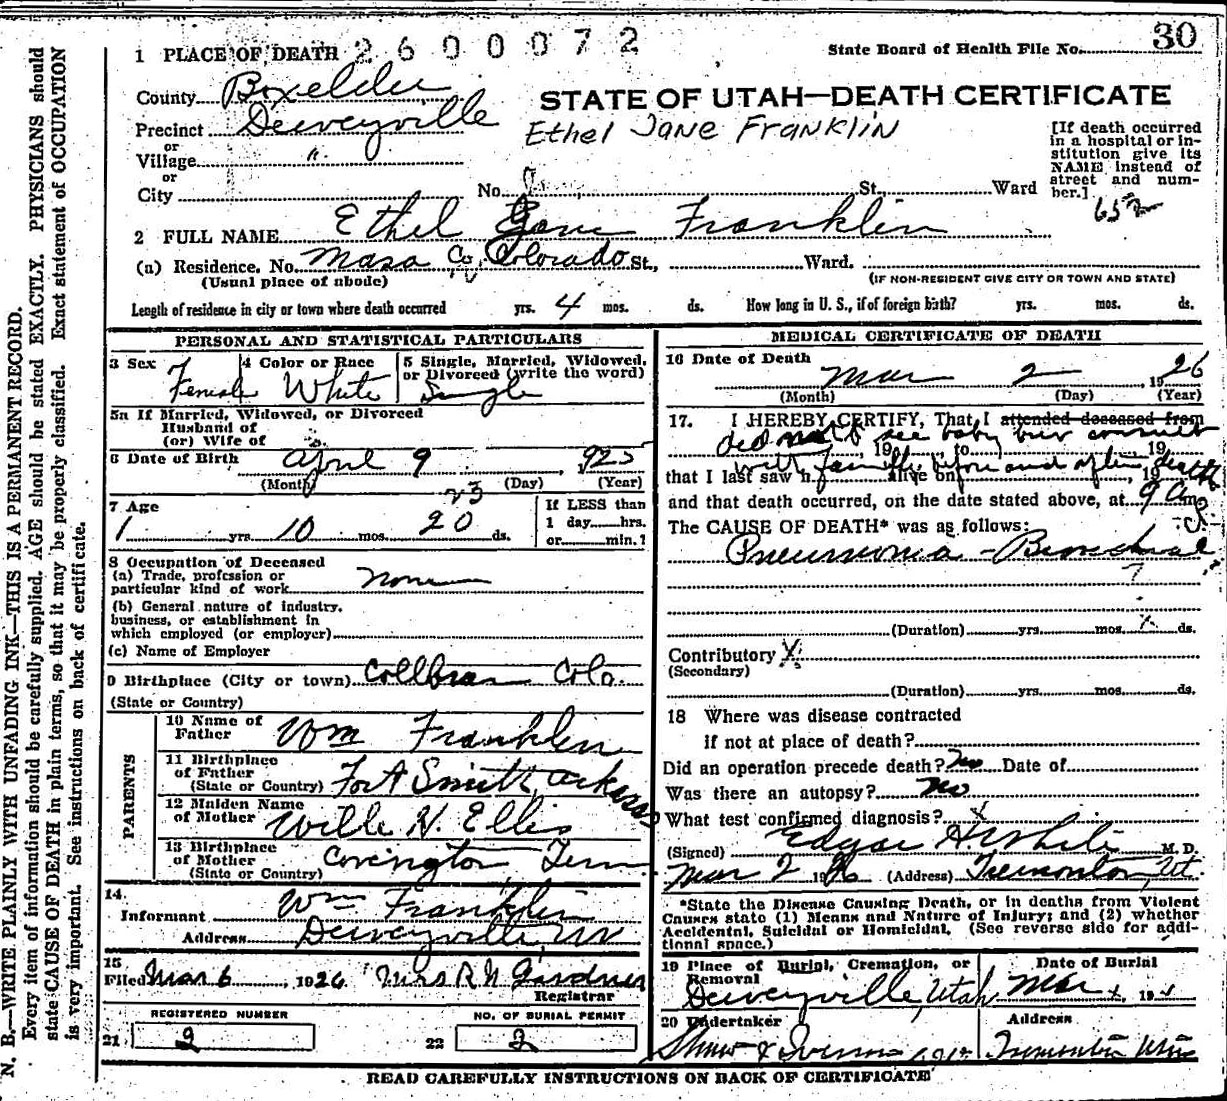 30
1 PLACE OF DEATH 2600072
State Board of Health File No.
County Boxelder
STATE OF UTAH—DEATH CERTIFICATE
Precinct Deweyville
Ethel Jane Franklin
or
Village "
or
City No. St., Ward
[If death occurred
in a hospital or in-
stitution give its
NAME instead of
street and num-
ber.]
2 FULL NAME Ethel Jane Franklin
(a) Residence. No. Masa Co, Colorado St., Ward.
(Usual place of abode)
(IF NON-RESIDENT GIVE CITY OR TOWN AND STATE)
Length of residence in city or town where death occurred yrs. 4 mos. ds. How long in U. S., if of foreign birth? yrs. mos. ds.
PERSONAL AND STATISTICAL PARTICULARS
3 Sex Female
4 Color or Race White
5 Single, Married, Widowed,
or Divorced (write the word)
Single
5a If Married, Widowed, or Divorced
Husband of
(or) Wife of
6 Date of Birth April 9, 1925
(Month) (Day) (Year)
7 Age
23
1 yrs 10 mos. 20 ds.
If LESS than
1 day hrs.
or min.?
8 Occupation of Deceased
(a) Trade, profession or
particular kind of work none
(b) General nature of industry,
business, or establishment in
which employed (or employer)
(c) Name of Employer
9 Birthplace (City or town) Collbran Colo.
(State or Country)
PARENTS
10 Name of
Father Wm Franklin
11 Birthplace
of Father
(State or Country) Fort Smith, Arkansas
12 Maiden Name
of Mother Wille N. Ellis
13 Birthplace
of Mother
(State or Country) Covington, Tenn
14.
Informant Wm Franklin
Address Deweyville, Ut
15
Filed Mar 6, 1926 Mrs R N Gardner
Registrar
REGISTERED NUMBER
21 2
NO. OF BURIAL PERMIT
22 2
MEDICAL CERTIFICATE OF DEATH
16 Date of Death
Mar 2, 1926
(Month) (Day) (Year)
17. I HEREBY CERTIFY, That I attended deceased from
did not see baby but consult
, 19 , to , 19
with family before and after death
that I last saw h alive on , 19
and that death occurred, on the date stated above, at 9 a m.
The CAUSE OF DEATH* was as follows:
Pneumonia - Bronchial
(Duration) yrs. mos. ds.
Contributory X
(Secondary)
(Duration) yrs. mos. ds.
18 Where was disease contracted
if not at place of death?
Did an operation precede death? No Date of
Was there an autopsy? No
What test confirmed diagnosis? X
(Signed) Edgar H. White M. D.
Mar 2 1926 (Address) Tremonton, Ut.
*State the Disease Causing Death, or in deaths from Violent
Causes state (1) Means and Nature of Injury; and (2) whether
Accidental, Suicidal or Homicidal. (See reverse side for addi-
tional space.)
19 Place of Burial, Cremation, or
Removal
Deweyville, Utah
Date of Burial
Mar
20 Undertaker
Shaw & Iverson
Address
Tremonton Utah
READ CAREFULLY INSTRUCTIONS ON BACK OF CERTIFICATE
N. B.—WRITE PLAINLY WITH UNFADING INK—THIS IS A PERMANENT RECORD.
Every item of information should be carefully supplied. AGE should be stated EXACTLY. PHYSICIANS should
state CAUSE OF DEATH in plain terms, so that it may be properly classified. Exact statement of OCCUPATION
is very important. See instructions on back of certificate.